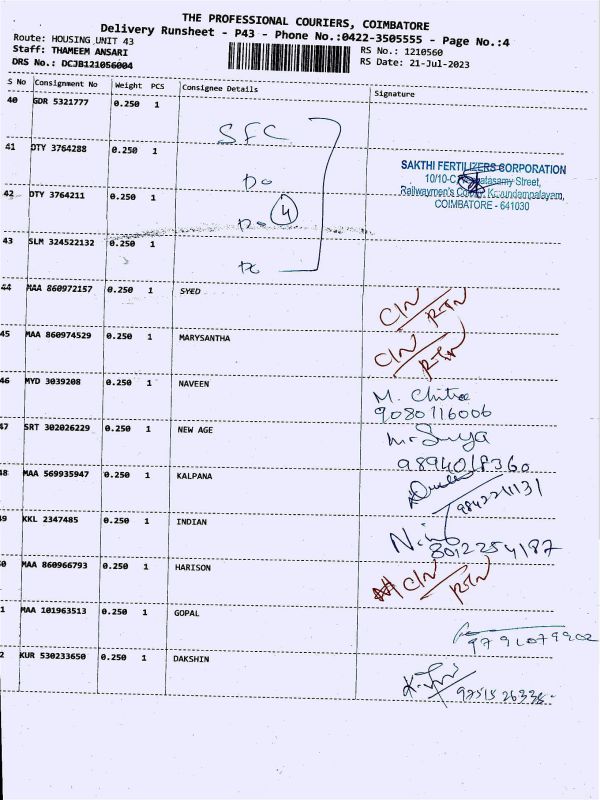 THE PROFESSIONAL COURIERS, COIMBATORE
Delivery Runsheet - P43 - Phone No.:0422-3505555 - Page No.:4
Route: HOUSING UNIT 43
RS No.: 1210560
Staff: THAMEEM ANSARI
RS Date: 21-Jul-2023
DRS No.: DCJB121056004
S No Consignment No Weight PCS Consignee Details Signature
40 GDR 5321777 0.250 1 SFC
41 DTY 3764288 0.250 1 Do
SAKTHI FERTILIZERS CORPORATION
Street,
Railwaymen's
COIMBATORE - 641030
42 DTY 3764211 0.250 1 Do 4
43 SLM 324522132 0.250 1
44 MAA 860972157 0.250 1 SYED C/N R-Tn
45 MAA 860974529 0.250 1 MARYSANTHA C/N R-Tn
46 MYD 3039208 0.250 1 NAVEEN M. Chitra
9080116006
47 SRT 302026229 0.250 1 NEW AGE
9894018360
48 MAA 569935947 0.250 1 KALPANA
49 KKL 2347485 0.250 1 INDIAN
8012254187
0 MAA 860966793 0.250 1 HARISON C/N R-Tn
1 MAA 101963513 0.250 1 GOPAL
9791079902
2 KUR 530233650 0.250 1 DAKSHIN